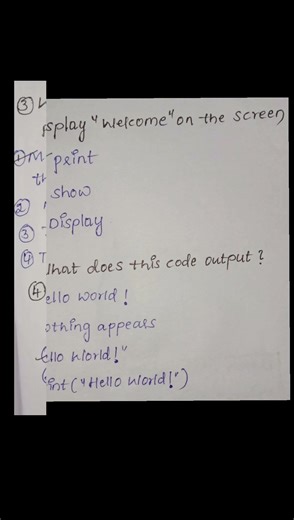 ③
splay "Welcome" on the screen
① print
th show
② 
③ Display
④ T
What does this code output?
④ ello world!
othing appears
ello World!"
int ("Hello World!")